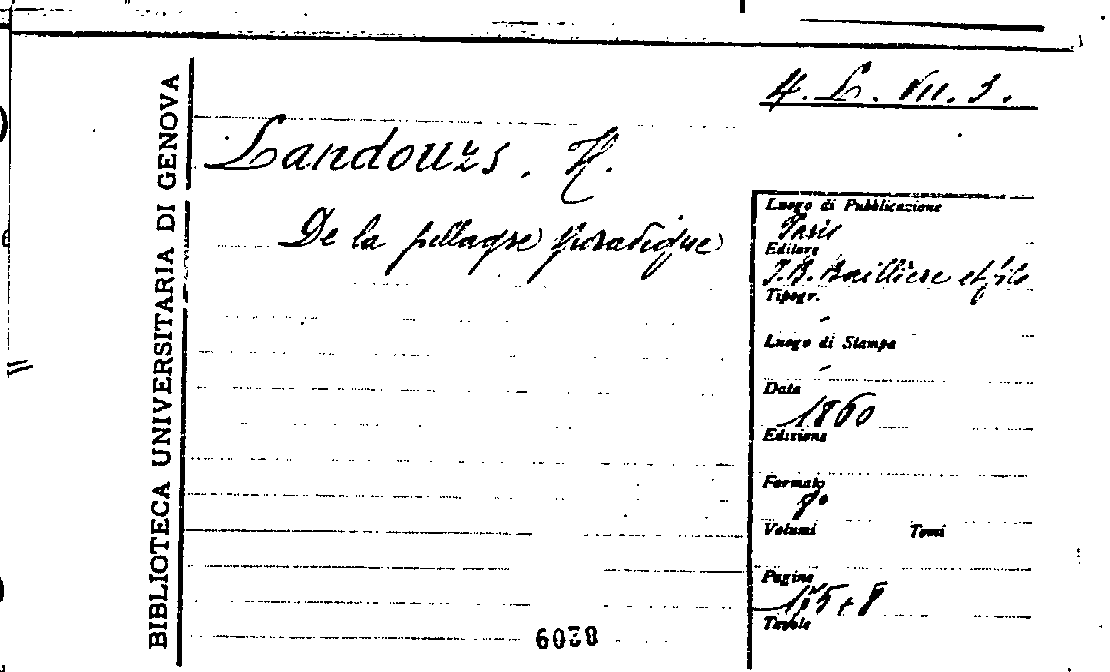 4. L. VII. 3.
BIBLIOTECA UNIVERSITARIA DI GENOVA
Landouzs, H.
De la pellagre sporadique
Luogo di Pubblicazione
Paris
Editore
J. B. Baillière et fils
Tipogr.
-
Luogo di Stampa
-
Data
1860
Edizione
Formato
8°
Volumi Tomi
Pagine
Tavole
8209